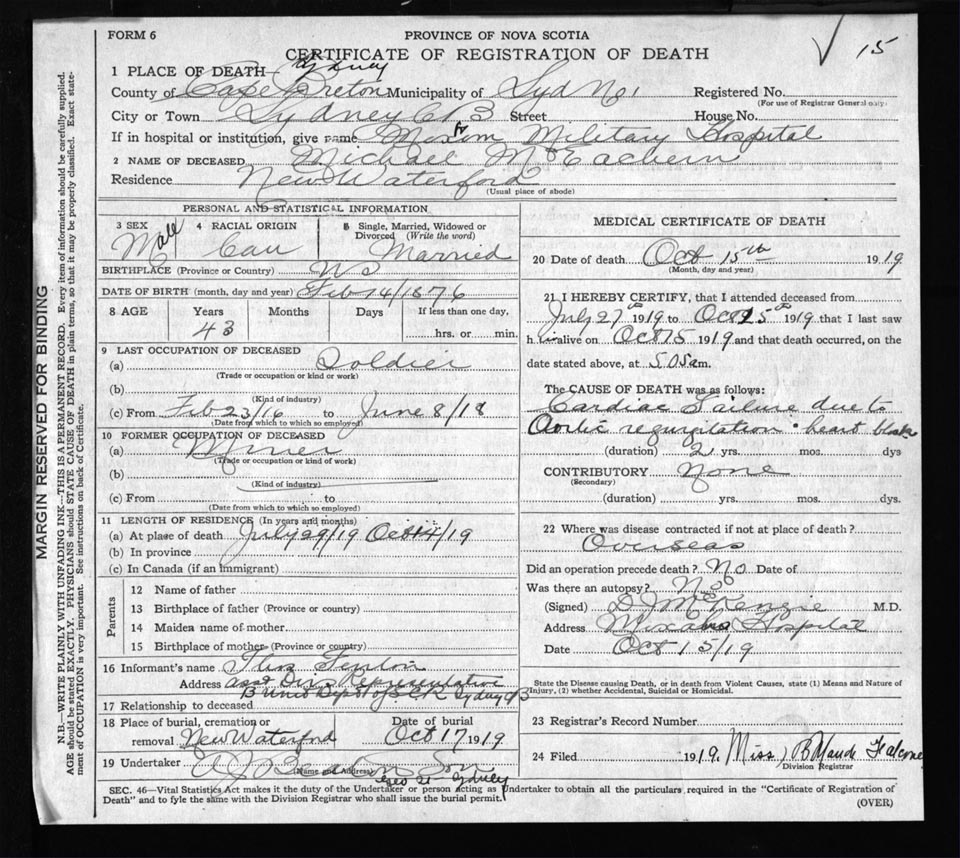 FORM 6
PROVINCE OF NOVA SCOTIA
CERTIFICATE OF REGISTRATION OF DEATH
15
1 PLACE OF DEATH Sydney
County of Cape Breton Municipality of Sydney Registered No.
(For use of Registrar General only)
City or Town Sydney C B Street House No.
If in hospital or institution, give name Moxham Military Hospital
2 NAME OF DECEASED Michael McEachern
Residence New Waterford
(Usual place of abode)
PERSONAL AND STATISTICAL INFORMATION
3 SEX Male
4 RACIAL ORIGIN Cau
5 Single, Married, Widowed or Divorced (Write the word) Married
BIRTHPLACE (Province or Country) NS
DATE OF BIRTH (month, day and year) Feb 14/1876
8 AGE Years Months Days If less than one day,
43 hrs. or min.
9 LAST OCCUPATION OF DECEASED
(a) Soldier
(Trade or occupation or kind of work)
(b)
(Kind of industry)
(c) From Feb 23/16 to June 8/18
(Date from which to which so employed)
10 FORMER OCCUPATION OF DECEASED
(a) Miner
(Trade or occupation or kind of work)
(b)
(Kind of industry)
(c) From to
(Date from which to which so employed)
11 LENGTH OF RESIDENCE (In years and months)
(a) At place of death July 29/19 Oct 14/19
(b) In province
(c) In Canada (if an immigrant)
Parents
12 Name of father
13 Birthplace of father (Province or country)
14 Maiden name of mother
15 Birthplace of mother (Province or country)
16 Informant's name
Address Asst Div Representative
Sydney CB
17 Relationship to deceased
18 Place of burial, cremation or Date of burial
removal New Waterford Oct 17 1919
19 Undertaker
(Name and Address)
Sydney
MEDICAL CERTIFICATE OF DEATH
20 Date of death Oct 15th 1919
(Month, day and year)
21 I HEREBY CERTIFY, that I attended deceased from
July 27th 1919 to Oct 15th 1919 that I last saw
him alive on Oct 15 1919 and that death occurred, on the
date stated above, at 5.05 am.
The CAUSE OF DEATH was as follows:
Cardiac Failure due to
Aortic regurgitation heart block
(duration) 2 yrs. mos. dys
CONTRIBUTORY None
(Secondary)
(duration) yrs. mos. dys.
22 Where was disease contracted if not at place of death?
Overseas
Did an operation precede death? No Date of
Was there an autopsy? No
(Signed) D J McKenzie M.D.
Address Moxham Hospital
Date Oct 15/19
State the Disease causing Death, or in death from Violent Causes, state (1) Means and Nature of
Injury, (2) whether Accidental, Suicidal or Homicidal.
23 Registrar's Record Number
24 Filed 1919. (Miss) B Maude Falconer
Division Registrar
SEC. 46—Vital Statistics Act makes it the duty of the Undertaker or person acting as Undertaker to obtain all the particulars required in the "Certificate of Registration of
Death" and to fyle the same with the Division Registrar who shall issue the burial permit.
(OVER)
MARGIN RESERVED FOR BINDING
N.B.—WRITE PLAINLY WITH UNFADING INK—THIS IS A PERMANENT RECORD. Every item of information should be carefully supplied.
AGE should be stated EXACTLY. PHYSICIANS should STATE CAUSE OF DEATH in plain terms, so that it may be properly classified. Exact state-
ment of OCCUPATION is very important. See instructions on back of Certificate.